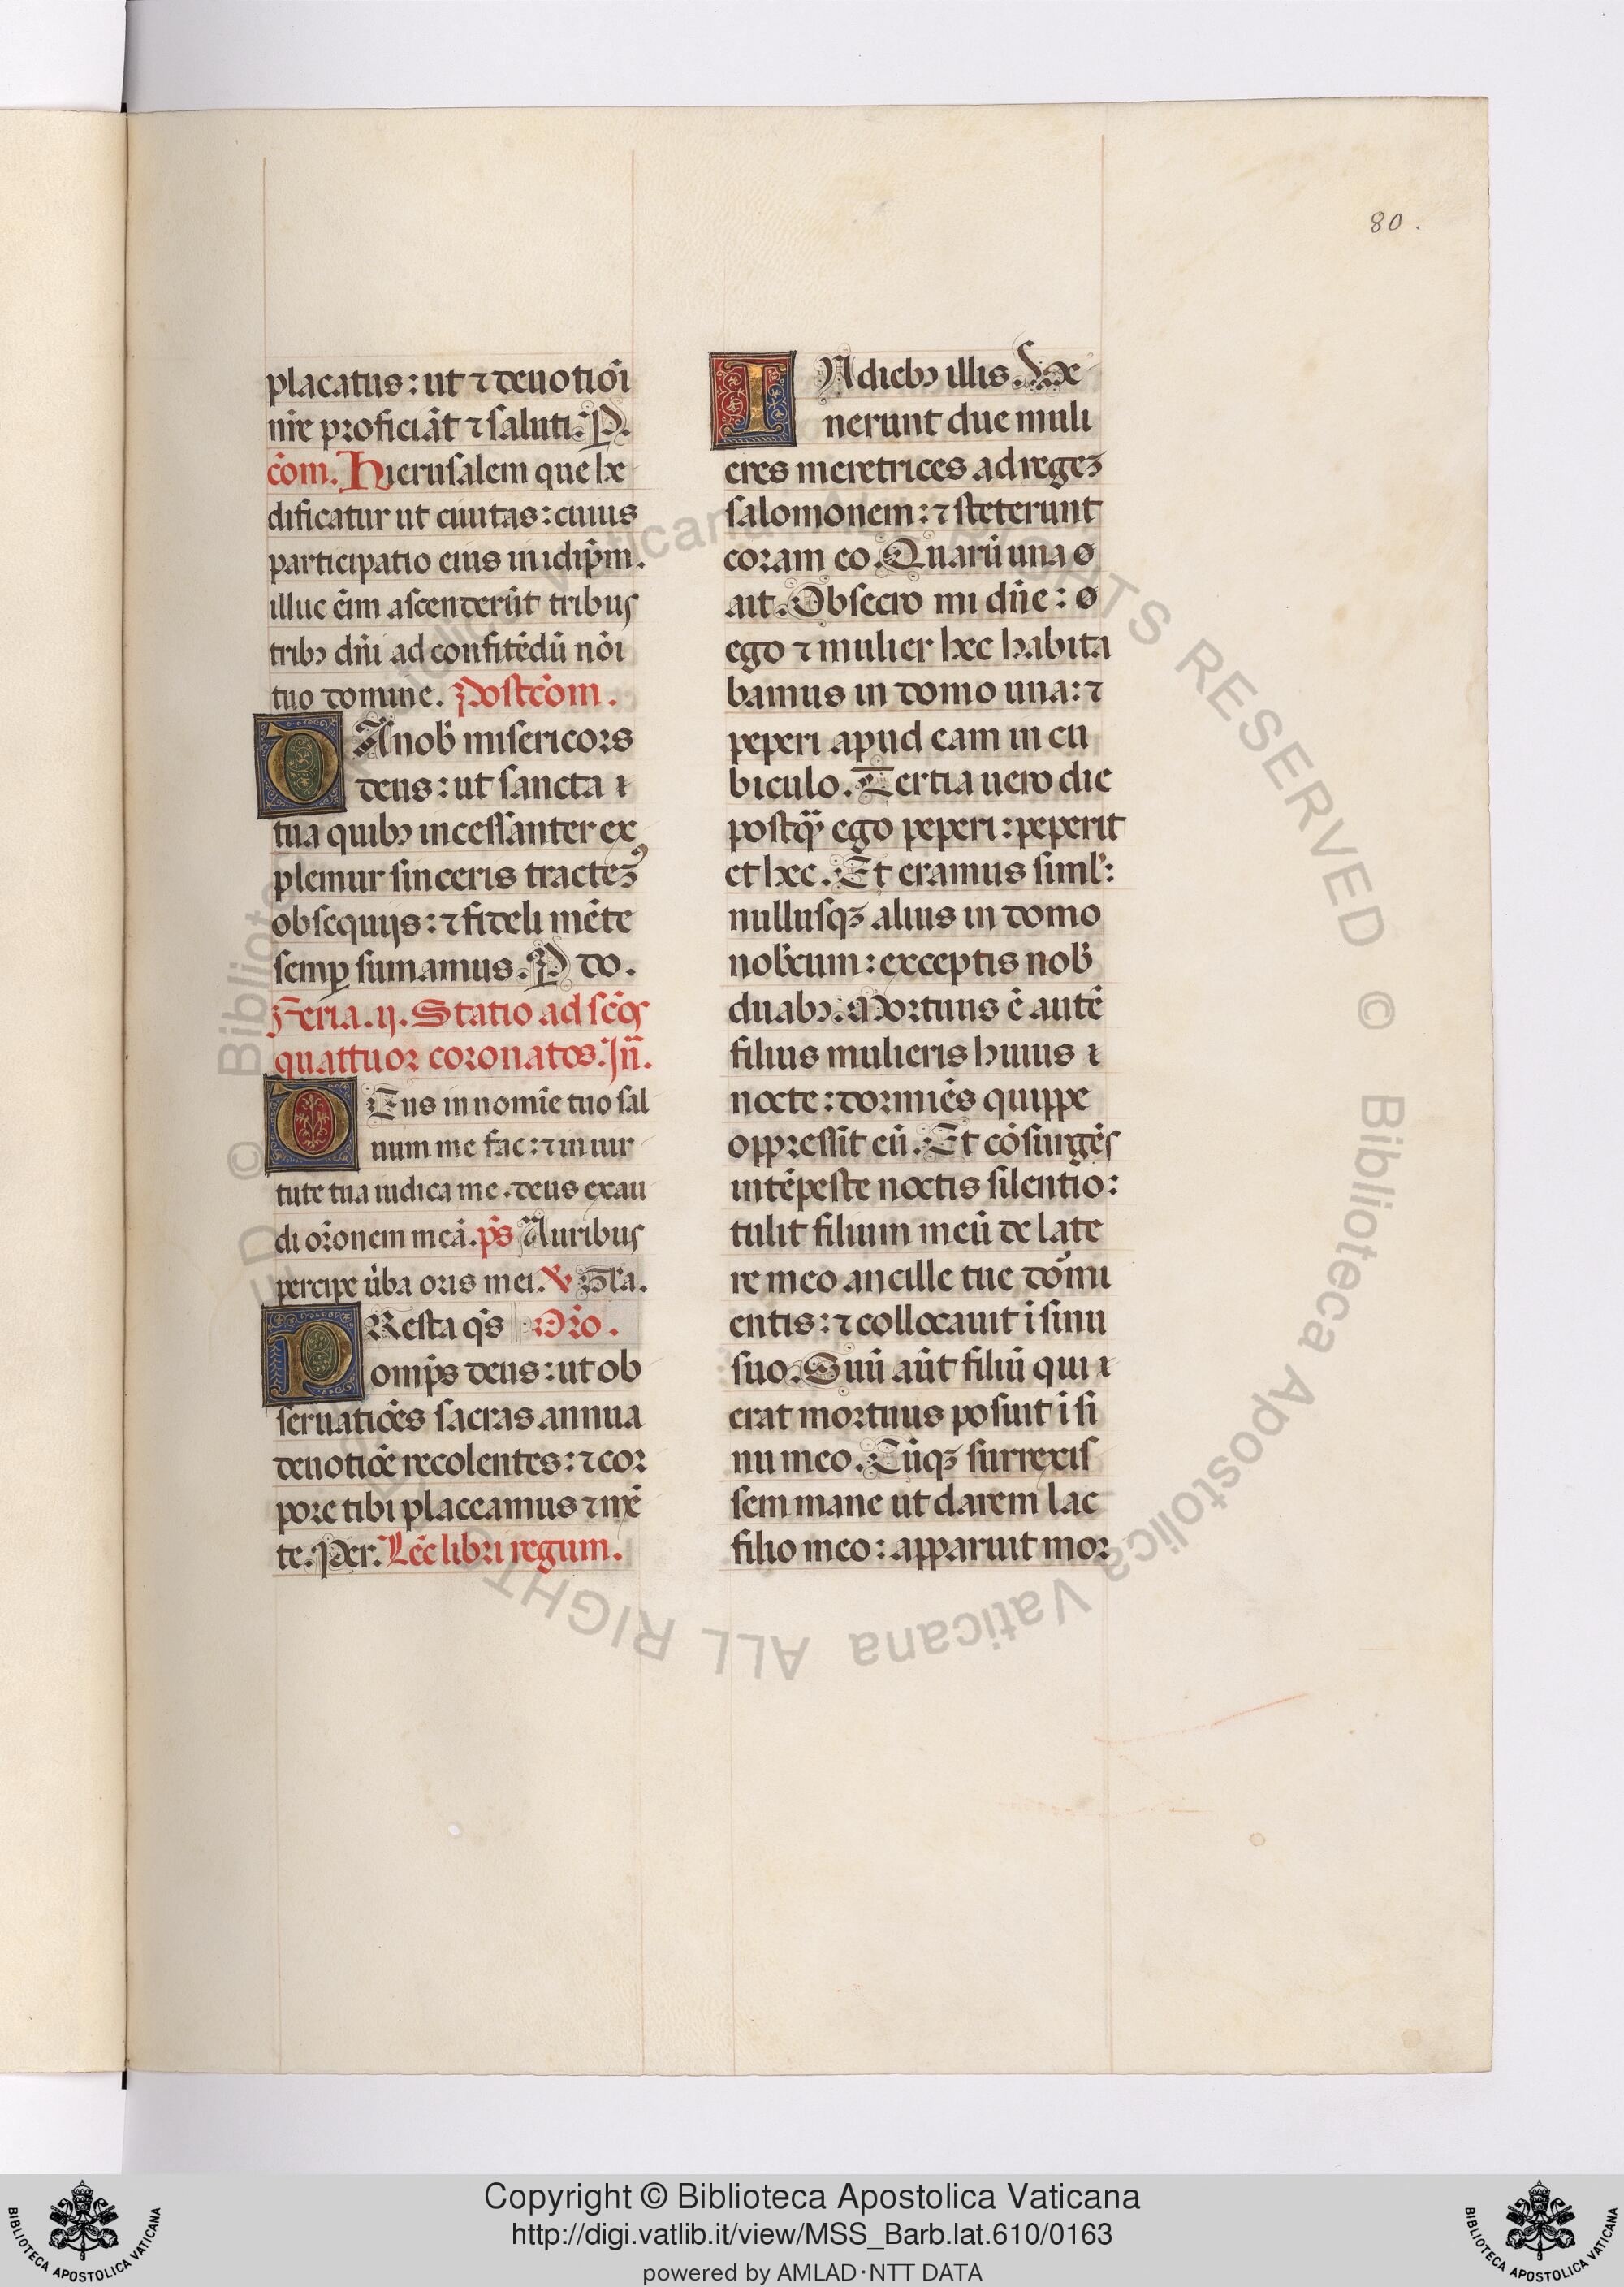 80.
placatus: ut ⁊ deuotiōi
nr̄e proficiāt ⁊ saluti. P.
cōm. Hierusalem que he
dificatur ut ciuitas: cuius
participatio eius in idip̄m.
illuc ēim ascenderūt tribus
tribꝫ dn̄i ad confitēdū nōi
tuo domine. Postcōm.
DA nob̄ misericors
deus: ut sancta
tua quibꝫ incessanter ex
plemur sinceris tractemꝰ
obsequijs: ⁊ fideli mēte
semꝑ sumamus. P do.
Feria. ij. Statio ad scōs
quattuor coronatos. Jn̄.
DEus in nomīe tuo sal
uum me fac: ⁊ in uir
tute tua iudica me. deus exau
di or̄onem meā. ps̄ Auribus
percipe ūba oris mei. ℣ Gl̄a.
PResta qs̄ Or̄o.
omps̄ deus: ut ob
seruatiōes sacras annua
deuotiōe recolentes: ⁊ cor
pore tibi placeamus ⁊ mē
te. Per. Lēc libri regum.
IN diebꝫ illis. Ve
nerunt due muli
eres meretrices ad regeꝫ
salomonem: ⁊ steterunt
coram eo. Quarū una
ait. Obsecro mi dn̄e:
ego ⁊ mulier hec habita
bamus in domo una: ⁊
peperi apud eam in cu
biculo. Tertia uero die
postq̄ ego peperi: peperit
et hec. Et eramus siml̄:
nullusqꝫ alius in domo
nob̄cum: exceptis nob̄
duabꝫ. Mortuus ē autē
filius mulieris huius
nocte: dormiēs quippe
oppressit eū. Et cōsurgēs
intēpeste noctis silentio:
tulit filium meū de late
re meo ancille tue dormi
entis: ⁊ collocauit ī sinu
suo. Suū aūt filiū qui
erat mortuus posuit ī si
nu meo. Cūqꝫ surrexis
sem mane ut darem lac
filio meo: apparuit mor
© Biblioteca Apostolica Vaticana ALL RIGHTS RESERVED © Biblioteca Apostolica Vaticana ALL RIGHTS RESERVED
Copyright © Biblioteca Apostolica Vaticana
http://digi.vatlib.it/view/MSS_Barb.lat.610/0163
powered by AMLAD·NTT DATA
BIBLIOTECA APOSTOLICA VATICANA
BIBLIOTECA APOSTOLICA VATICANA